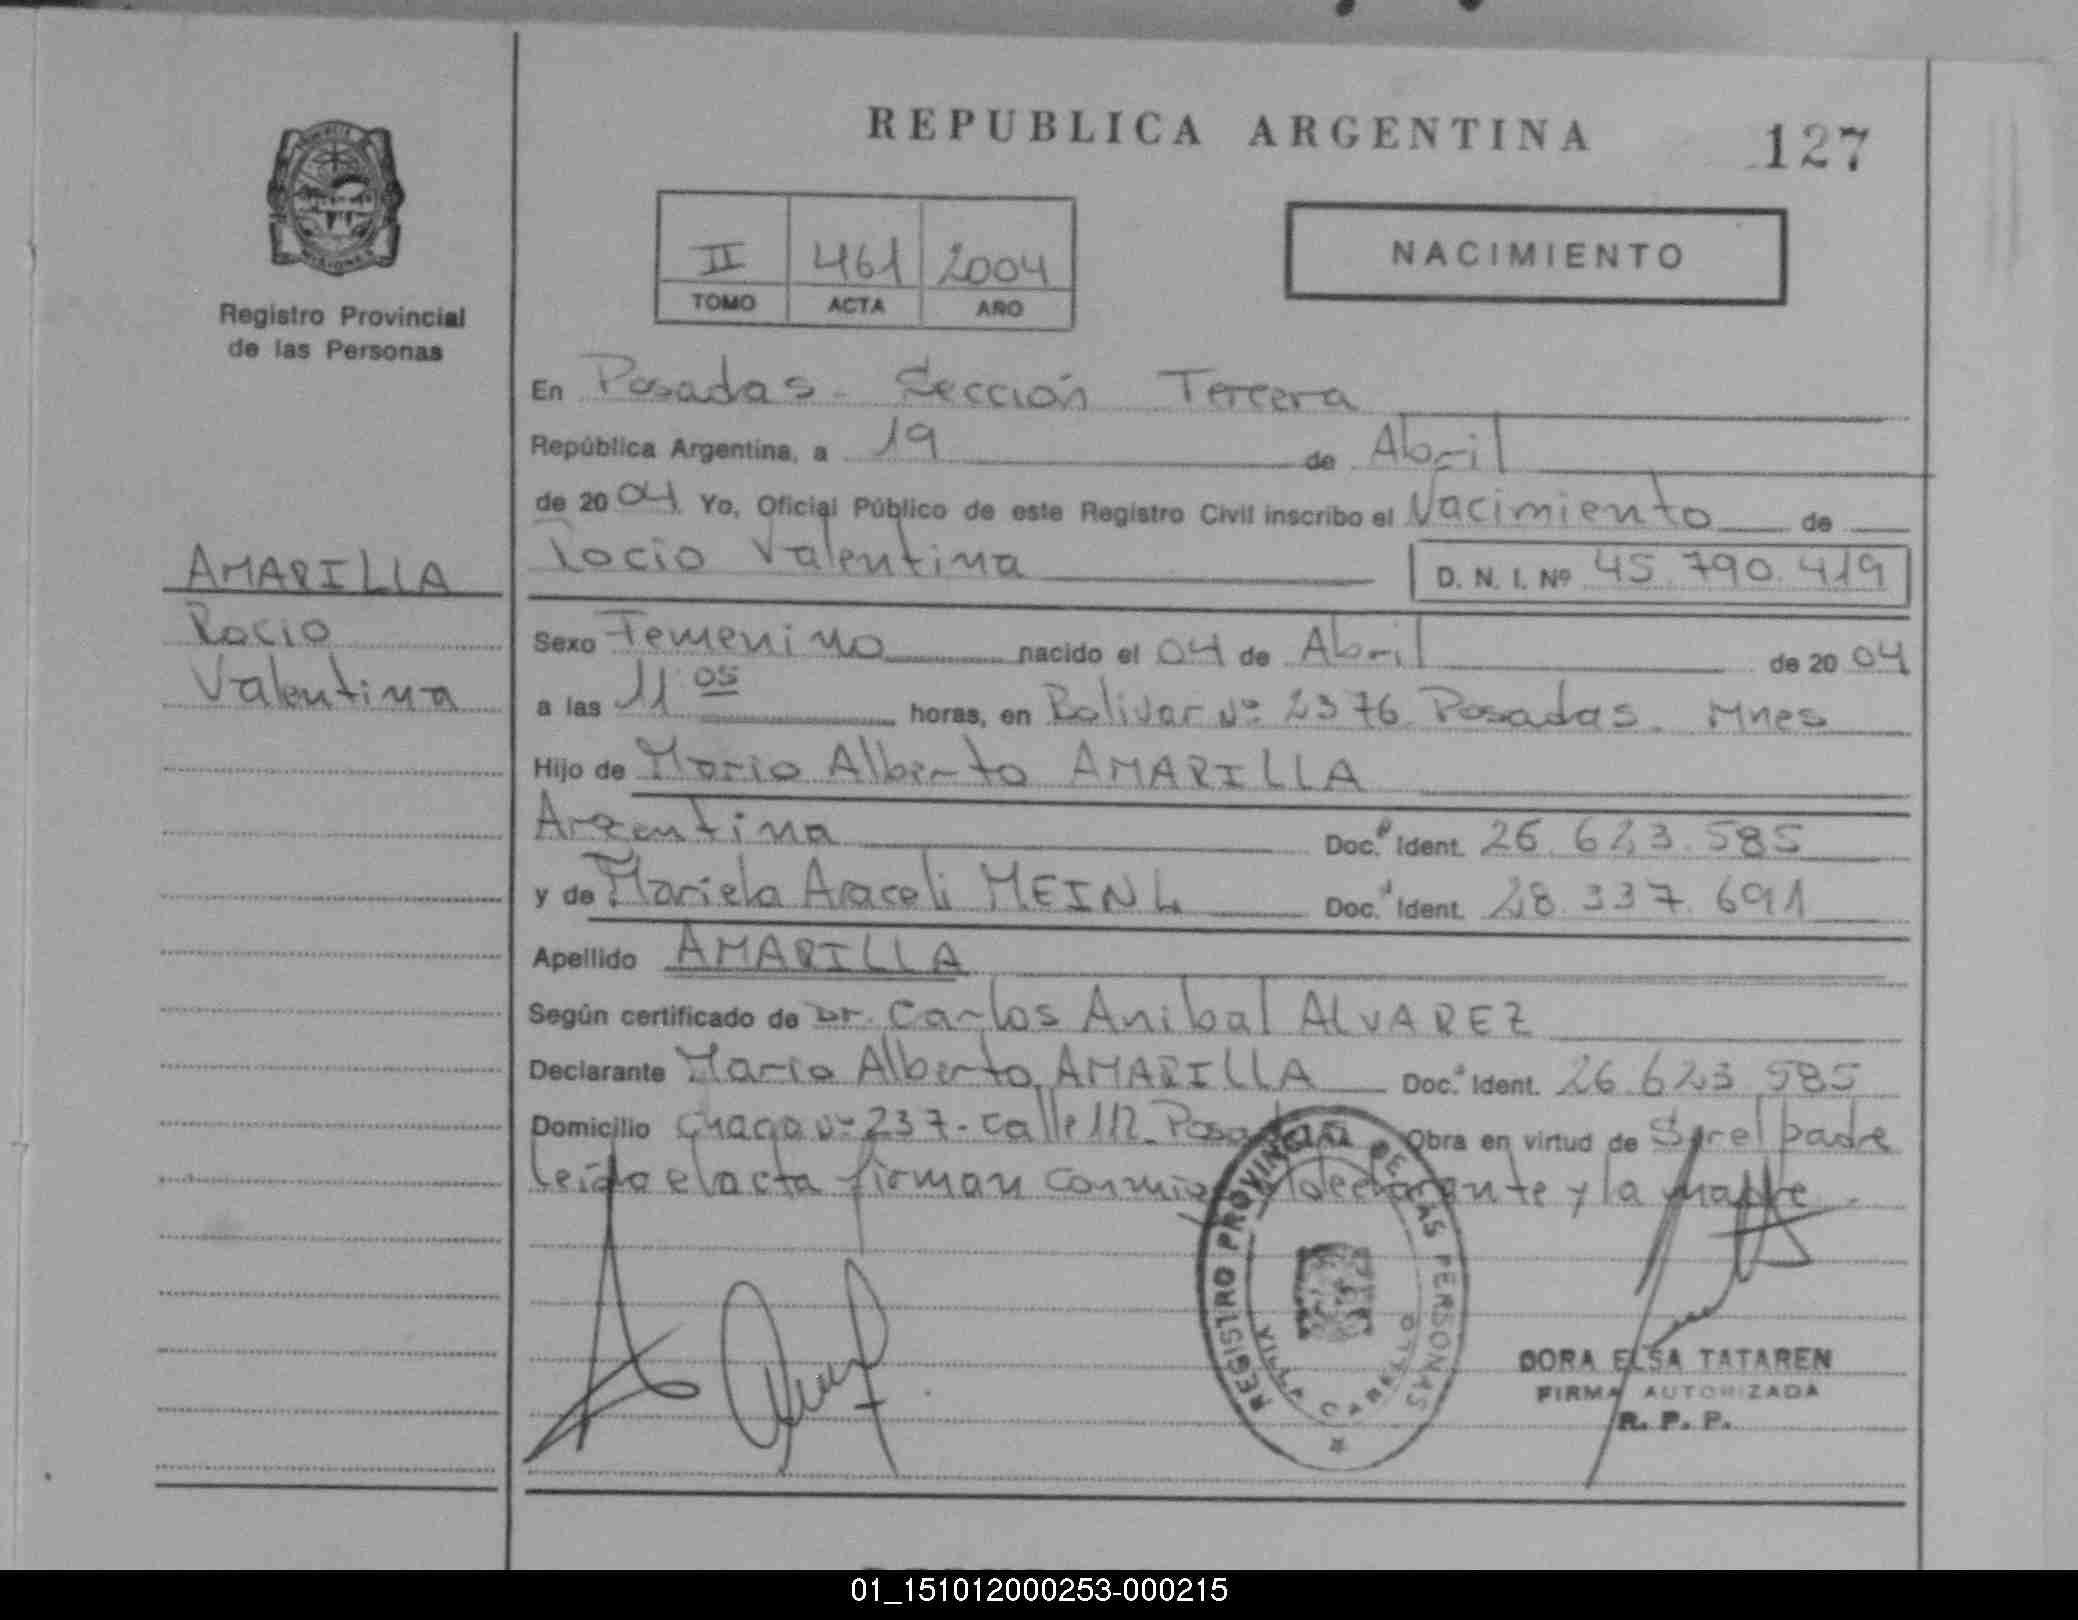 REPUBLICA ARGENTINA
127
NACIMIENTO
II 461 2004
TOMO ACTA AÑO
Registro Provincial
de las Personas
AMARILLA
Rocio
Valentina
En Posadas - Sección Tercera
República Argentina, a 19 de Abril
de 2004 Yo, Oficial Público de este Registro Civil inscribo el Nacimiento de
Rocio Valentina D. N. I. Nº 45.790.419
Sexo Femenino nacido el 04 de Abril de 2004
a las 11 05 horas, en Bolivar Nº 2376 Posadas - Mnes
Hijo de Mario Alberto AMARILLA
Argentina Doc. Ident. 26.623.585
y de Mariela Araceli MEINL Doc. Ident. 28.337.691
Apellido AMARILLA
Según certificado de Dr. Carlos Anibal ALVAREZ
Declarante Mario Alberto AMARILLA Doc. Ident. 26.623.585
Domicilio Chaco Nº 237 - Calle 112 - Posadas Obra en virtud de Ser el padre
Leída el acta firman conmigo el declarante y la madre.
REGISTRO PROVINCIAL DE LAS PERSONAS
VILLA CABELLO
DORA ELSA TATAREN
FIRMA AUTORIZADA
R. P. P.
01_151012000253-000215